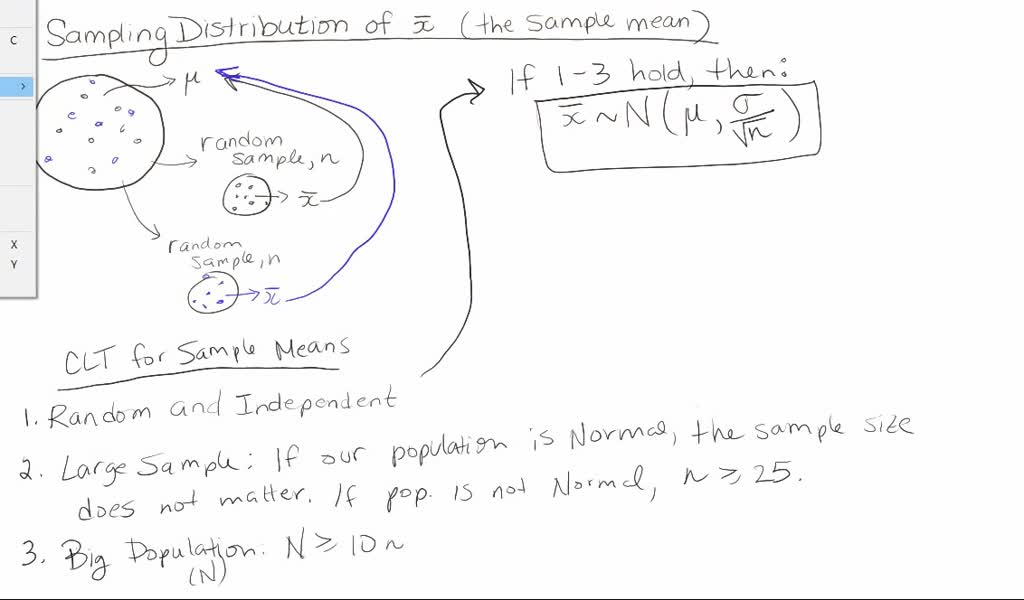 C
X
Y
Sampling Distribution of x̄ (the sample mean)
μ
random
sample, n
x̄
random
sample, n
x̄
If 1-3 hold, then:
x̄ ~ N(μ, σ/√n)
CLT for Sample Means
1. Random and Independent
2. Large Sample: If our population is Normal, the sample size
does not matter. If pop. is not Normal, n ≥ 25.
3. Big Population: N ≥ 10n
(N)